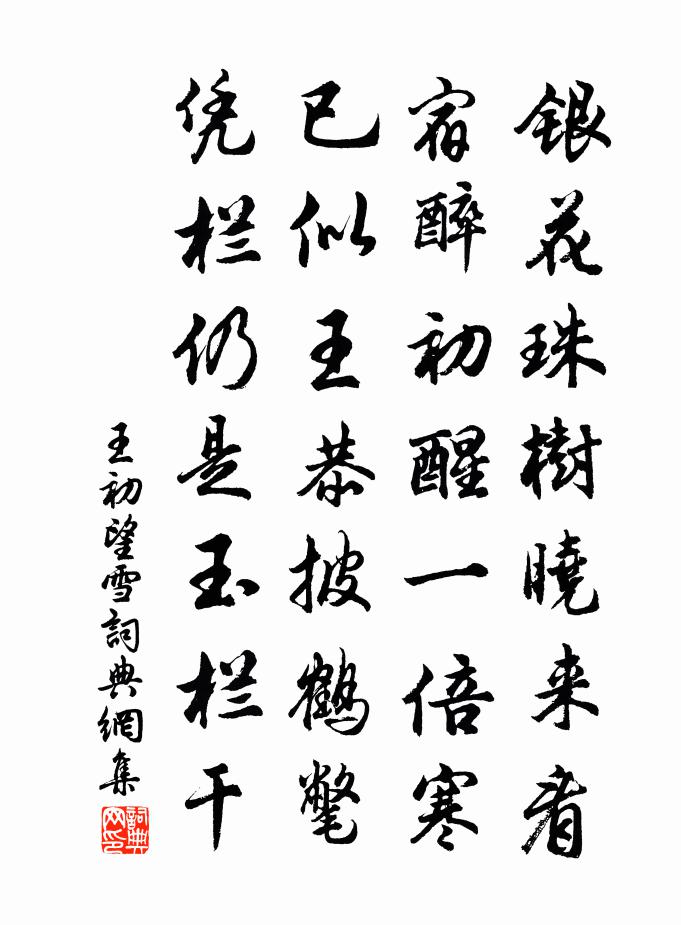 銀花珠樹曉来看
宿醉初醒一倍寒
已似王恭披鶴氅
凭栏仍是玉栏干
王初望雪詞典網集
詞典网印